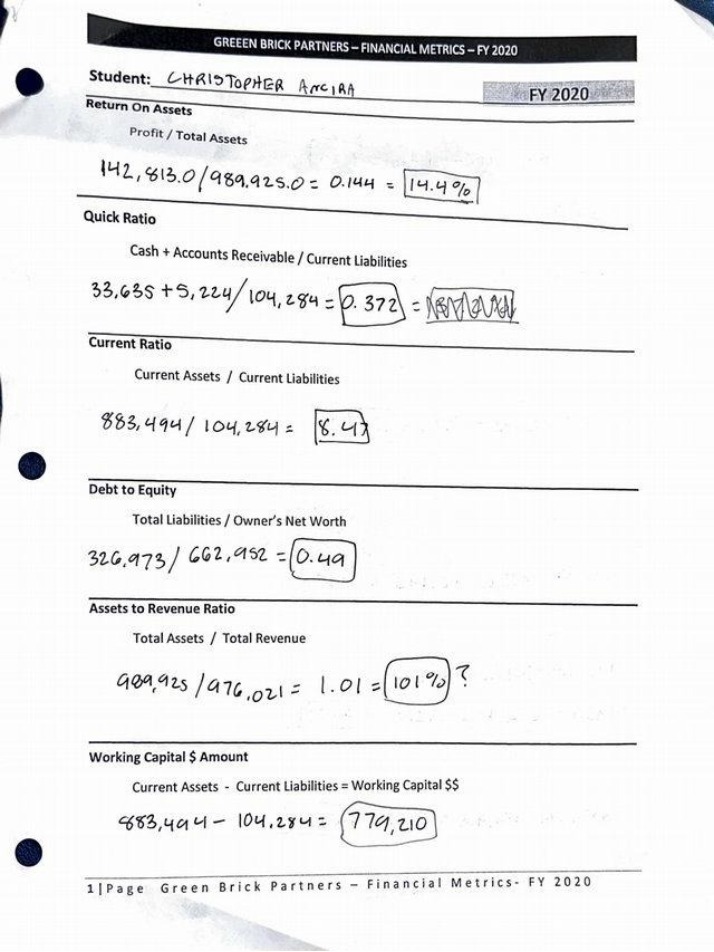 GREEEN BRICK PARTNERS – FINANCIAL METRICS – FY 2020
Student: CHRISTOPHER ANCIRA
FY 2020
Return On Assets
Profit / Total Assets
142,813.0/989,925.0 = 0.144 = 14.4%
Quick Ratio
Cash + Accounts Receivable / Current Liabilities
33,635 + 5,224/104,284 = 0.372 =
Current Ratio
Current Assets / Current Liabilities
883,494/ 104,284 = 8.47
Debt to Equity
Total Liabilities / Owner's Net Worth
326,973/ 662,952 = 0.49
Assets to Revenue Ratio
Total Assets / Total Revenue
989,925 /976,021 = 1.01 = 101% ?
Working Capital $ Amount
Current Assets - Current Liabilities = Working Capital $$
883,494 - 104,284 = 779,210
1|Page Green Brick Partners – Financial Metrics- FY 2020